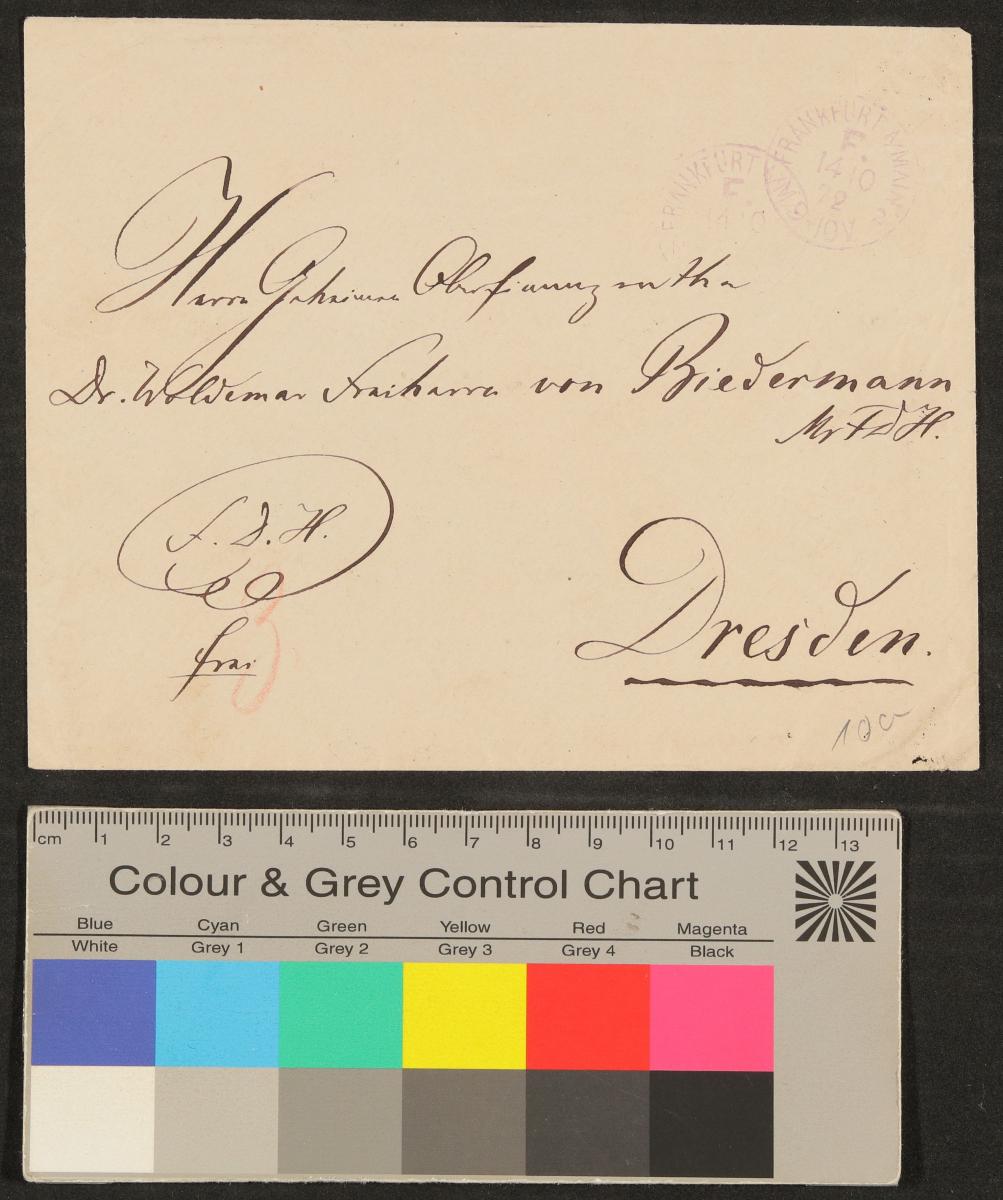 FRANKFURT
F.
FRANKFURT A/MAIN
F.
14 10
72
9 NOV
Herrn Geheimen Oberfinanzrathe
Dr. Woldemar Freiherrn von Biedermann
MrFDH.
F. D. H.
frei
3
Dresden.
cm 1 2 3 4 5 6 7 8 9 10 11 12 13
Colour & Grey Control Chart
Blue Cyan Green Yellow Red Magenta
White Grey 1 Grey 2 Grey 3 Grey 4 Black